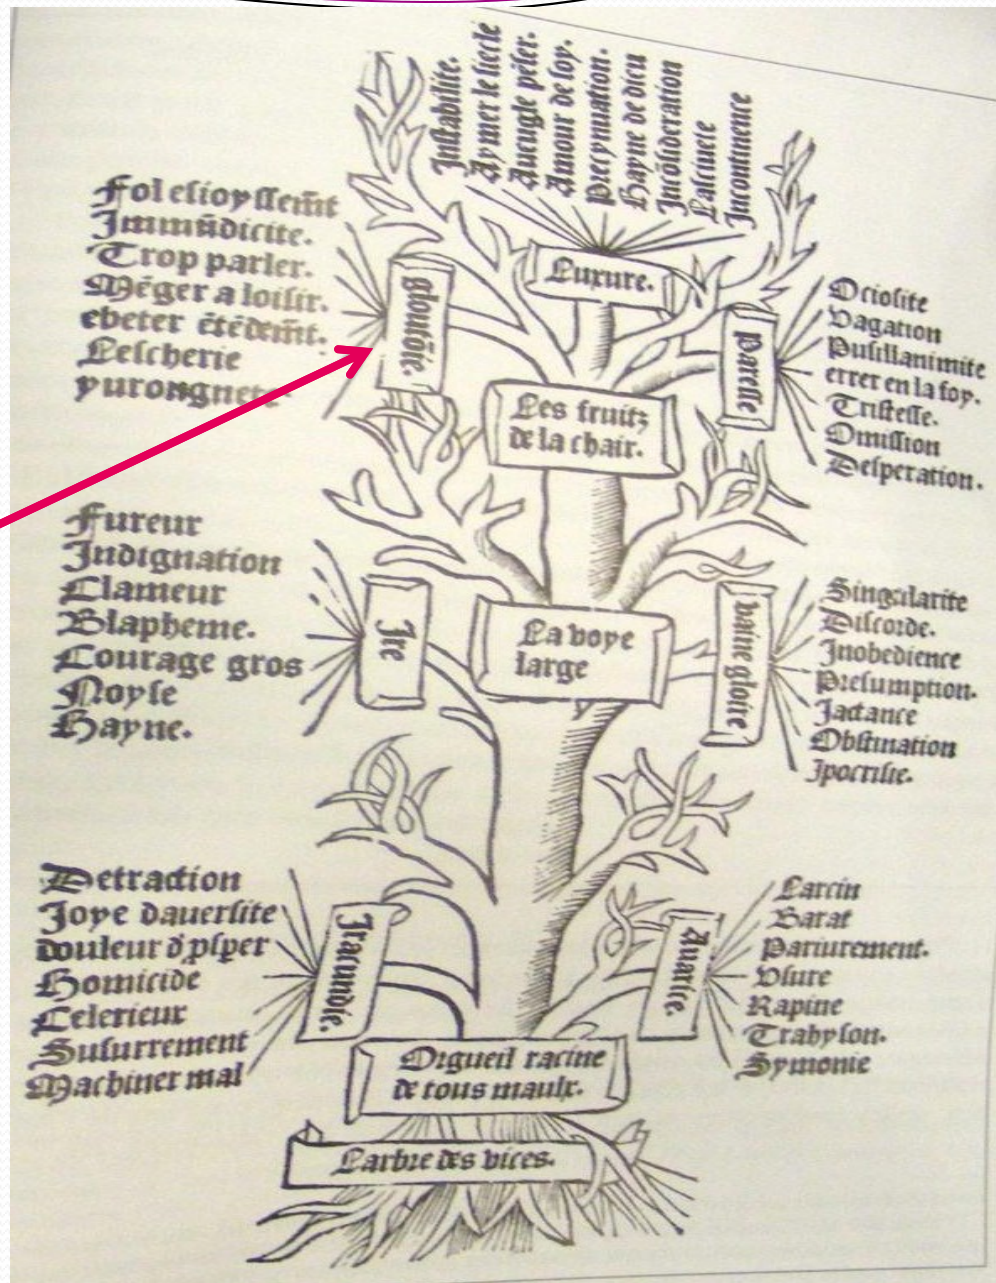 Instabilite.
Aymer le siecle
Aueugle pēser.
Amour de soy.
Precynation.
Hayne de dieu
Incōsideration
Lasciuete
Incontinence
Luxure.
Fol esioyssem̄t
Immūdicite.
Trop parler.
Mēger a loisir.
ebeter ētēdem̄t.
Lescherie
yurongnete
gloutōie.
Ociosite
Vagation
Pusillanimite
errer en la foy.
Tristesse.
Omission
Desperation.
Paresse
Les fruitz
de la chair.
Fureur
Indignation
Clameur
Blapheme.
Courage gros
Noyse
Hayne.
Ire
La voye
large
vaine gloire
Singularite
Discorde.
Inobedience
Presumption.
Jactance
Obstination
Ipocrisie.
Detraction
Joye dauersite
douleur d̄ p̱sper
Homicide
Celerieur
Susurrement
Machiner mal
Iracundie.
Auarice.
Larcin
Barat
Pariurement.
Vsure
Rapine
Trahyson.
Symonie
Orgueil racine
de tous maulx.
Larbre des vices.